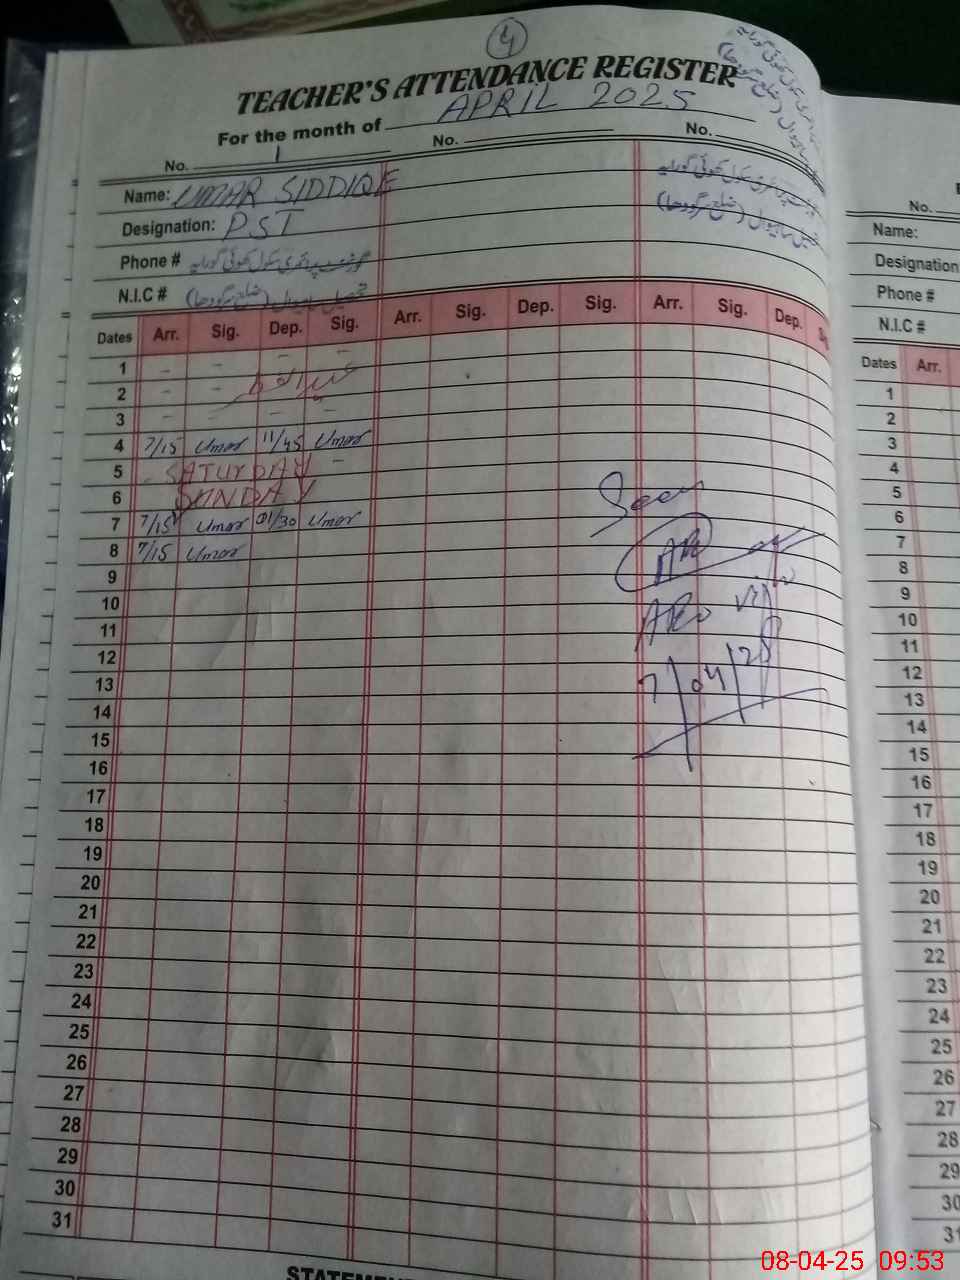 4
TEACHER'S ATTENDANCE REGISTER
For the month of APRIL 2025
No. 1 No. No.
Name: UMAR SIDDIQE
Designation: PST
Phone #
N.I.C #
Dates Arr. Sig. Dep. Sig. Arr. Sig. Dep. Sig. Arr. Sig. Dep.
1 - - - -
2 - - عیدالفطر
3 - - - -
4 7/15 Umar 11/45 Umar
5 SATURDAY -
6 SUNDAY
7 7/15 Umar 01/30 Umar
8 7/15 Umar
9
10
11
12
13
14
15
16
17
18
19
20
21
22
23
24
25
26
27
28
29
30
31
Seen
7/04/25
No.
Name:
Designation
Phone #
N.I.C #
Dates Arr.
1
2
3
4
5
6
7
8
9
10
11
12
13
14
15
16
17
18
19
20
21
22
23
24
25
26
27
28
29
30
31
08-04-25 09:53